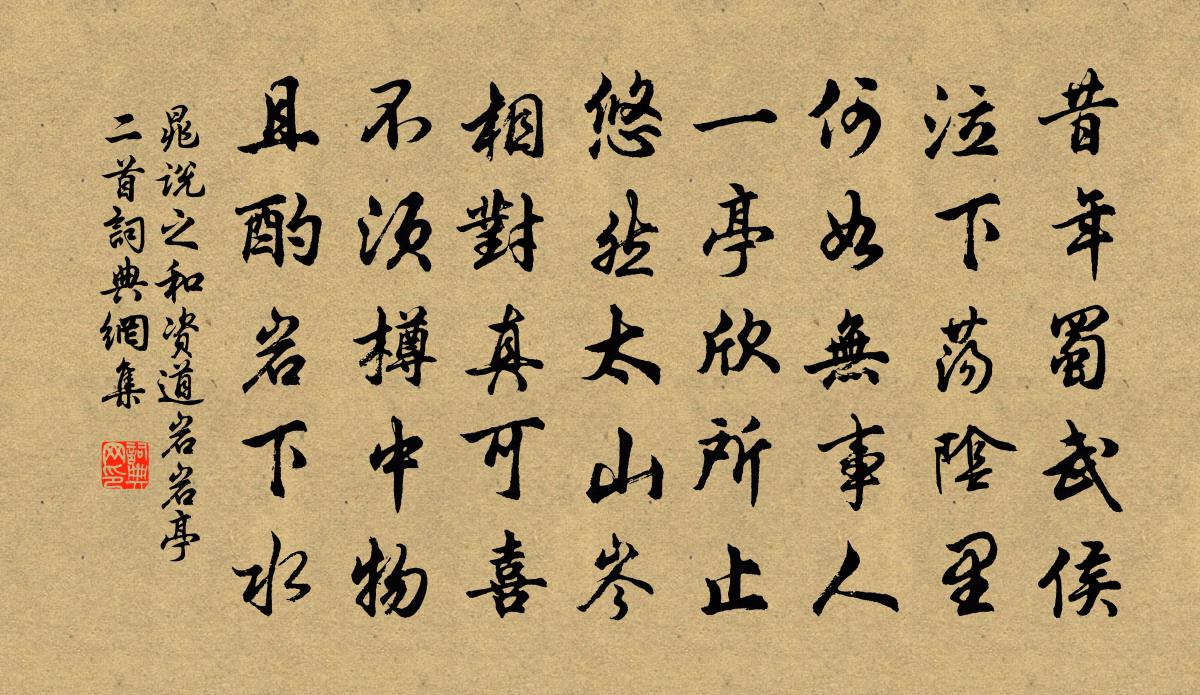 昔年蜀武侯
泣下蕩陰里
何如無事人
一亭欣所止
悠然太山岑
相對真可喜
不須樽中物
且酌岩下水
晁说之和资道岩岩亭
二首詞典網集
詞典
网印